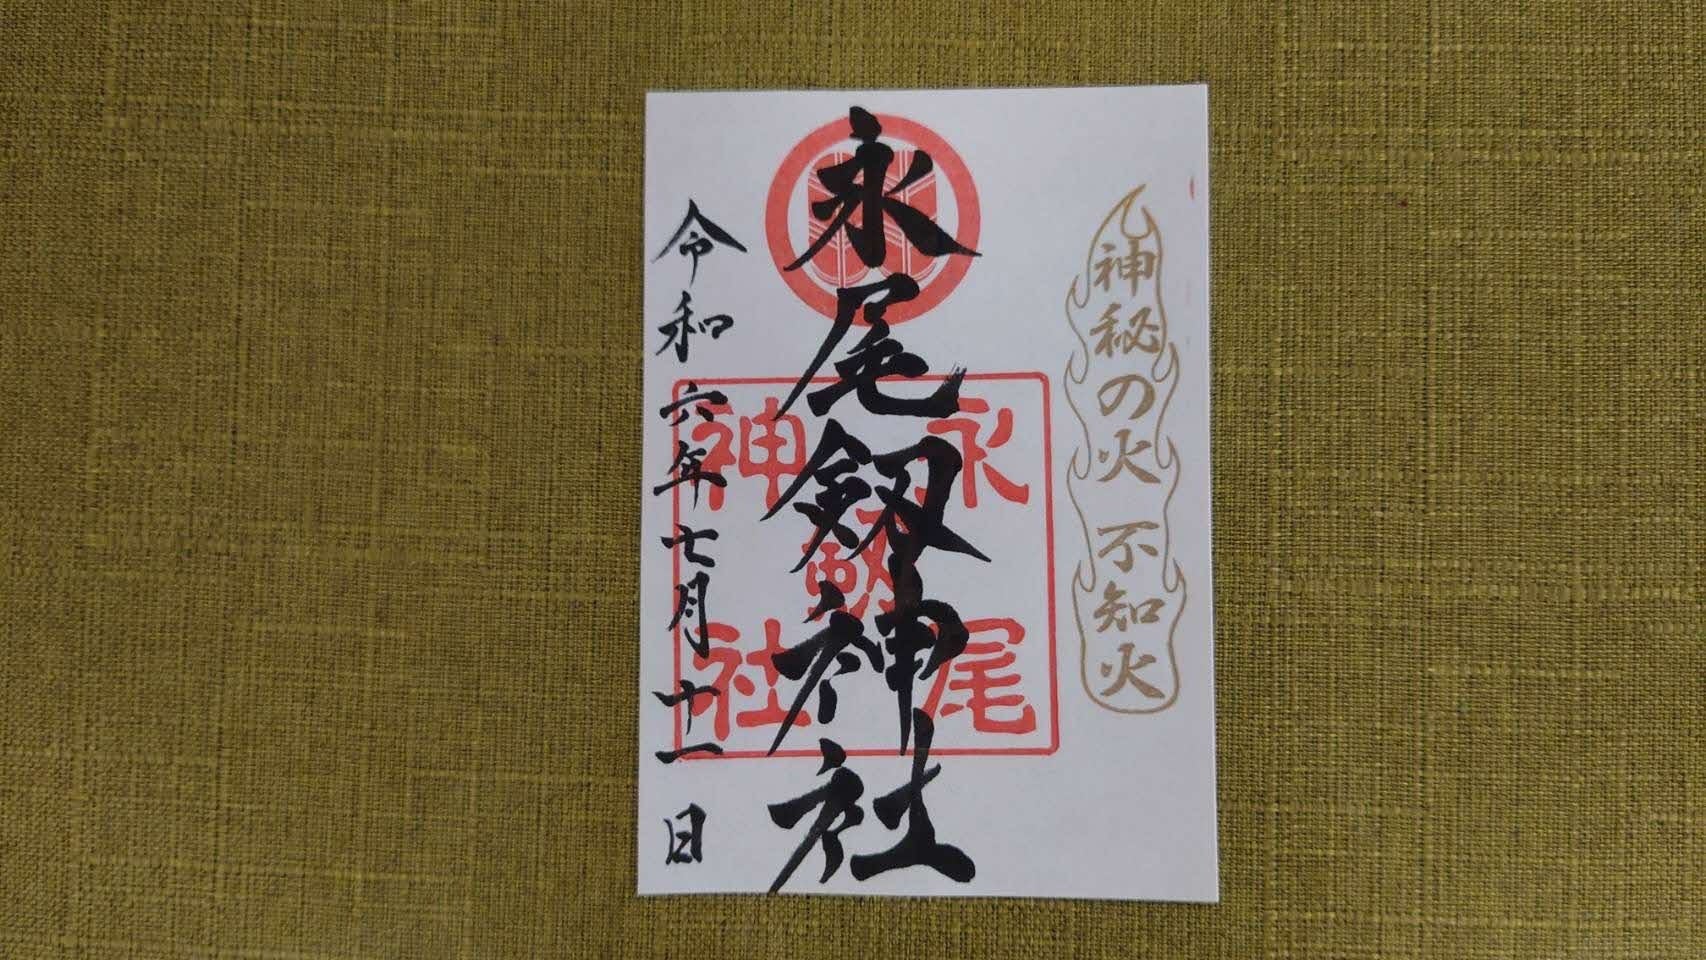 神秘の火 不知火
永尾劔神社
永尾
劔
神社
令和六年七月十一日